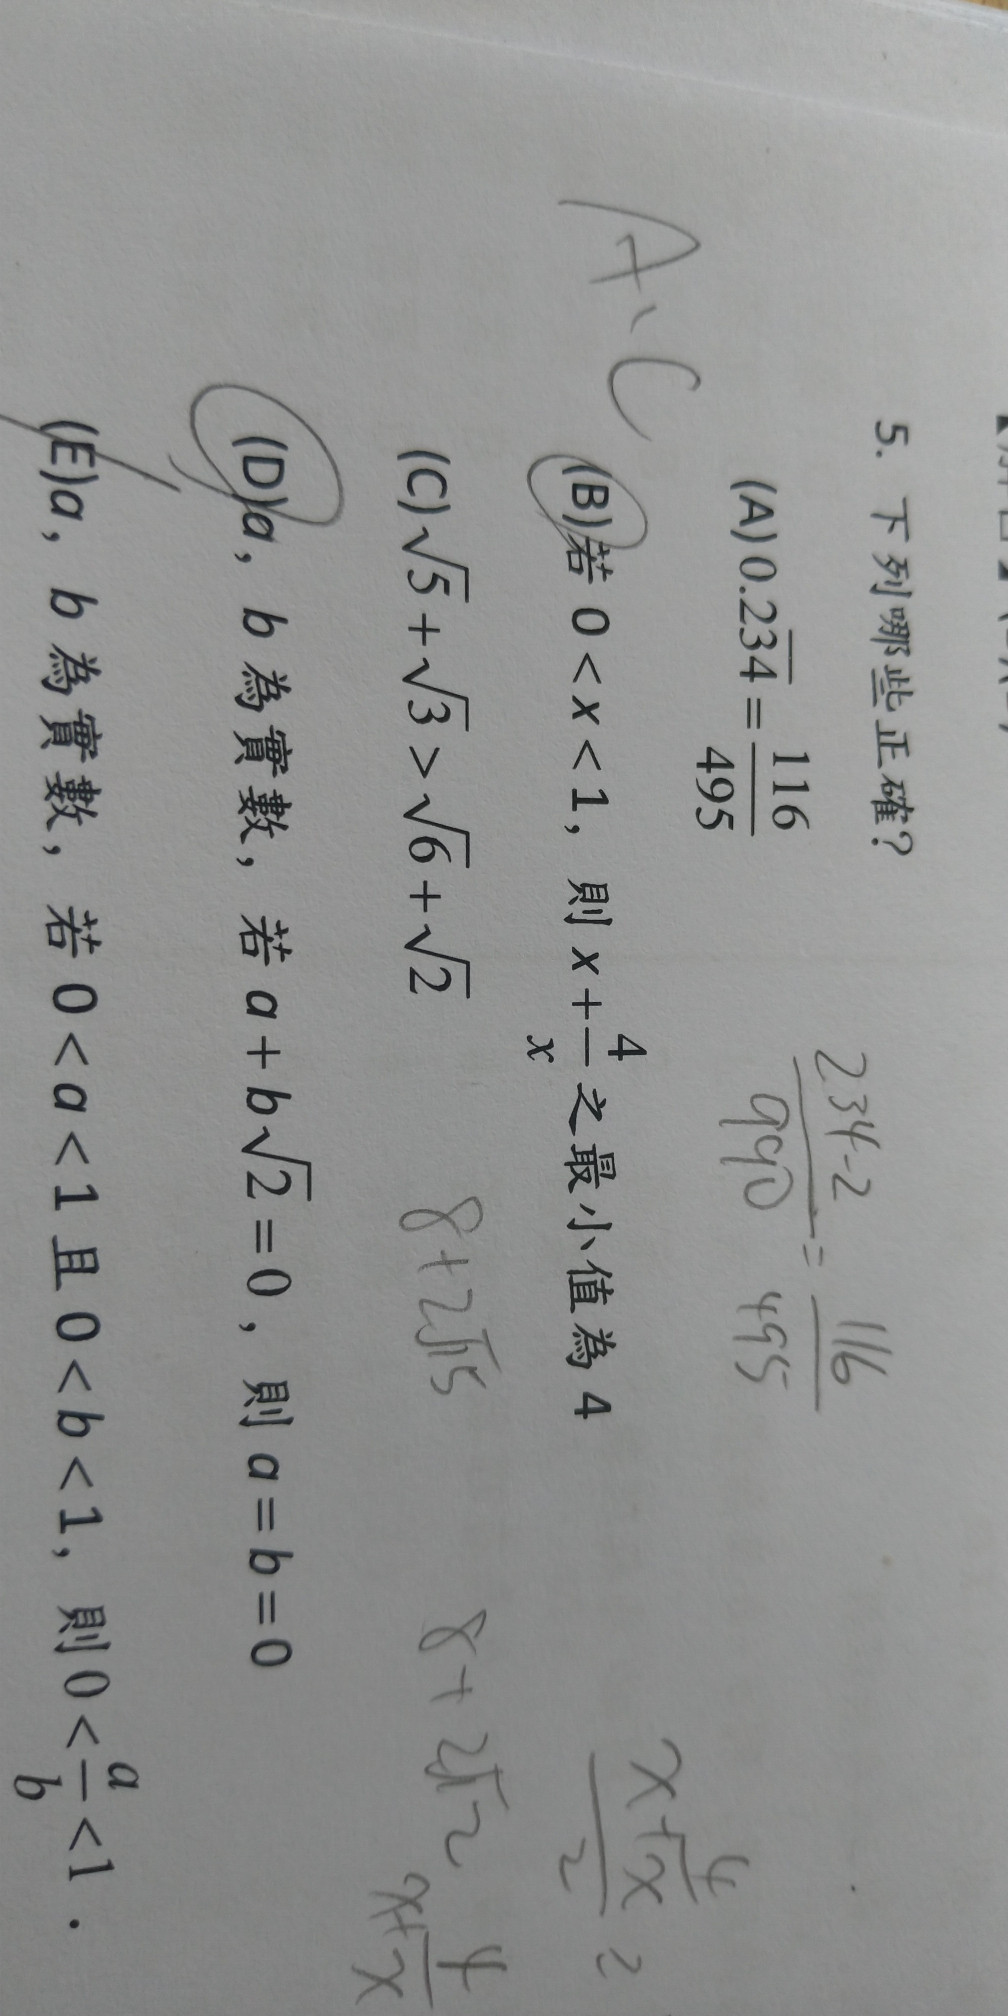 5. 下列哪些正確?
(A) 0.2\overline{34} = \frac{116}{495}
\frac{234-2}{990} = \frac{116}{495}
A、C
(B) 若 0 < x < 1, 則 x + \frac{4}{x} 之最小值為 4
\frac{x+\frac{4}{x}}{2} =
(C) √5 + √3 > √6 + √2
8+2√15
8+2√12
x+\frac{4}{x}
(D) a, b 為實數, 若 a + b√2 = 0, 則 a = b = 0
(E) a, b 為實數, 若 0 < a < 1 且 0 < b < 1, 則 0 < \frac{a}{b} < 1 .